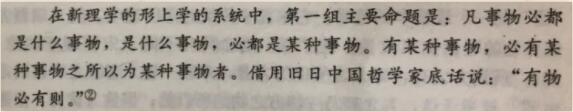 在新理学的形上学的系统中，第一组主要命题是：凡事物必都
是什么事物，是什么事物，必都是某种事物。有某种事物，必有某
种事物之所以为某种事物者。借用旧日中国哲学家底话说：“有物
必有则。”②